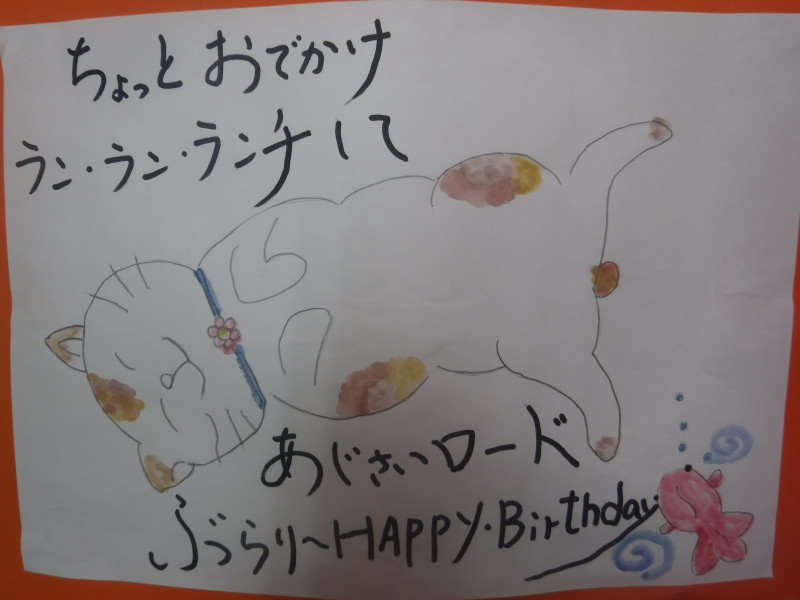 ちょっとおでかけ
ラン・ラン・ランチして
あじさいロード
ぶらり～HAPPY・Birthday